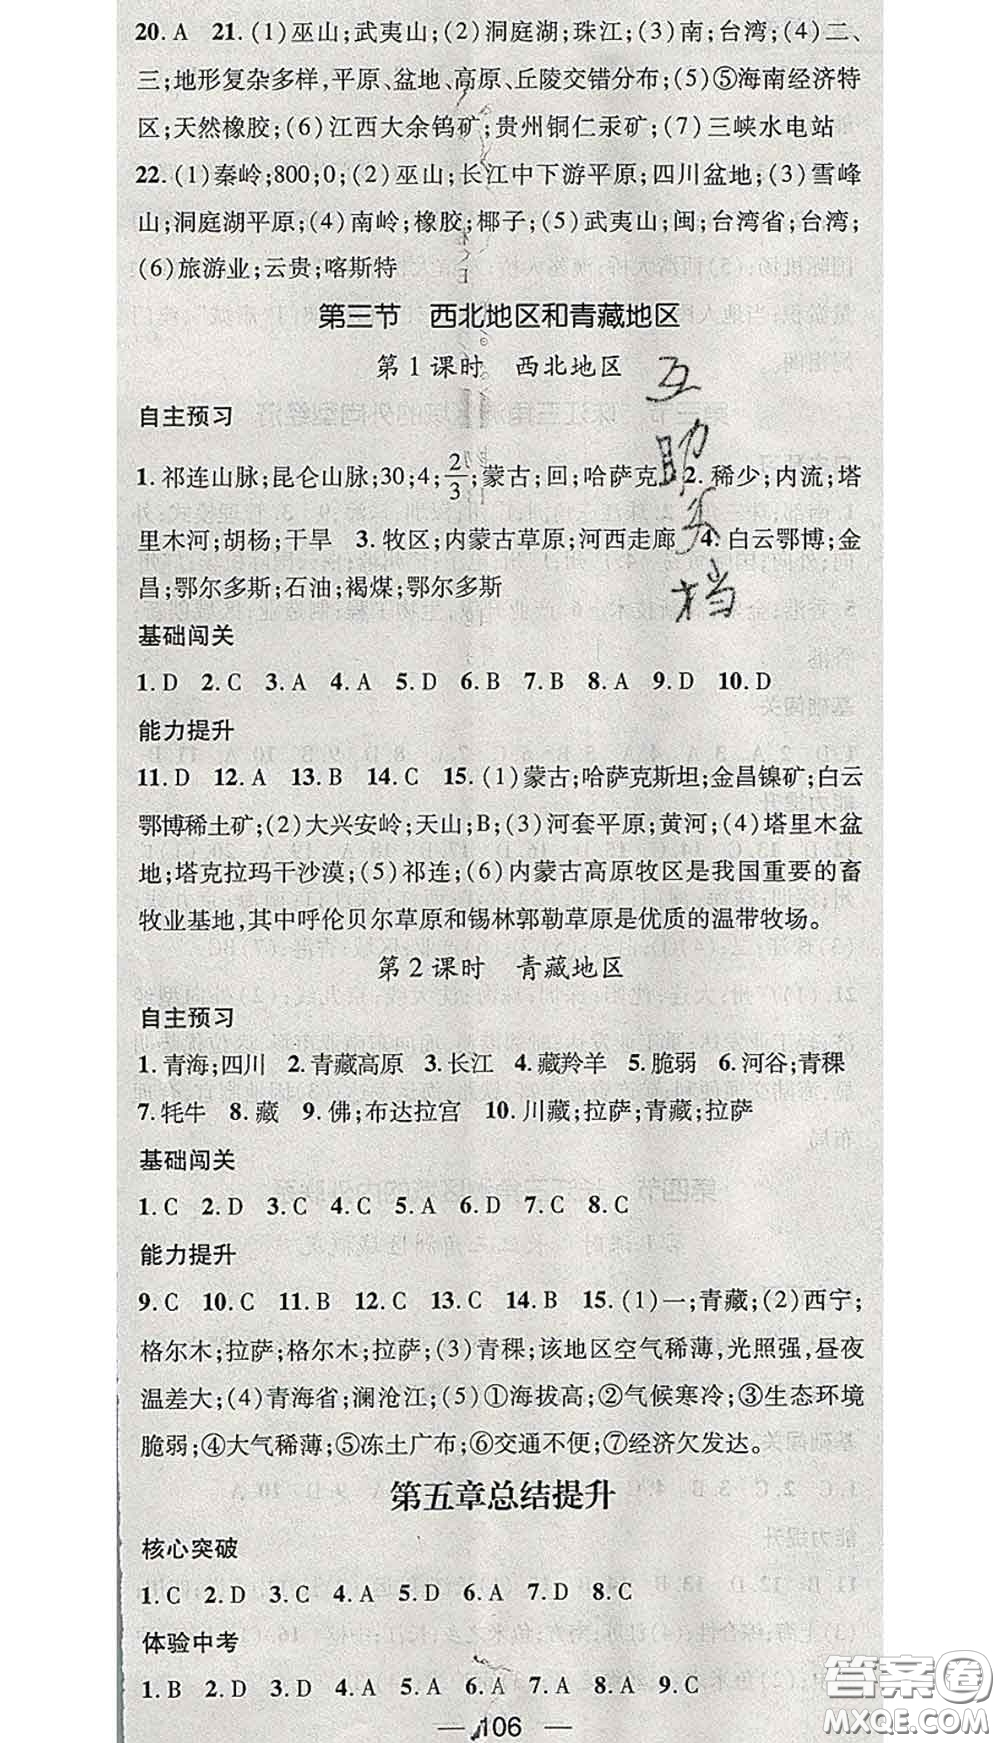 20. A 21. (1)巫山;武夷山;(2)洞庭湖;珠江;(3)南;台湾;(4)二、
三;地形复杂多样,平原、盆地、高原、丘陵交错分布;(5)⑤海南经济特
区;天然橡胶;(6)江西大余钨矿;贵州铜仁汞矿;(7)三峡水电站
22. (1)秦岭;800;0;(2)巫山;长江中下游平原;四川盆地;(3)雪峰
山;洞庭湖平原;(4)南岭;橡胶;椰子;(5)武夷山;闽;台湾省;台湾;
(6)旅游业;云贵;喀斯特
第三节 西北地区和青藏地区
第1课时 西北地区
自主预习
1. 祁连山脉;昆仑山脉;30;4;2/3;蒙古;回;哈萨克 2. 稀少;内流;塔
里木河;胡杨;干旱 3. 牧区;内蒙古草原;河西走廊 4. 白云鄂博;金
昌;鄂尔多斯;石油;褐煤;鄂尔多斯
互助文档
基础闯关
1. D 2. C 3. A 4. A 5. D 6. B 7. B 8. A 9. D 10. D
能力提升
11. D 12. A 13. B 14. C 15. (1)蒙古;哈萨克斯坦;金昌镍矿;白云
鄂博稀土矿;(2)大兴安岭;天山;B;(3)河套平原;黄河;(4)塔里木盆
地;塔克拉玛干沙漠;(5)祁连;(6)内蒙古高原牧区是我国重要的畜
牧业基地,其中呼伦贝尔草原和锡林郭勒草原是优质的温带牧场。
第2课时 青藏地区
自主预习
1. 青海;四川 2. 青藏高原 3. 长江 4. 藏羚羊 5. 脆弱 6. 河谷;青稞
7. 牦牛 8. 藏 9. 佛;布达拉宫 10. 川藏;拉萨;青藏;拉萨
基础闯关
1. C 2. D 3. C 4. C 5. A 6. D 7. C 8. C
能力提升
9. C 10. C 11. B 12. C 13. C 14. B 15. (1)一;青藏;(2)西宁;
格尔木;拉萨;格尔木;拉萨;(3)青稞;该地区空气稀薄,光照强,昼夜
温差大;(4)青海省;澜沧江;(5)①海拔高;②气候寒冷;③生态环境
脆弱;④大气稀薄;⑤冻土广布;⑥交通不便;⑦经济欠发达。
第五章总结提升
核心突破
1. C 2. D 3. C 4. A 5. D 6. A 7. D 8. C
体验中考
1. B 2. D 3. D 4. A 5. A 6. A 7. A 8. A 9. C
— 106 —
答案圈
MXQE.COM